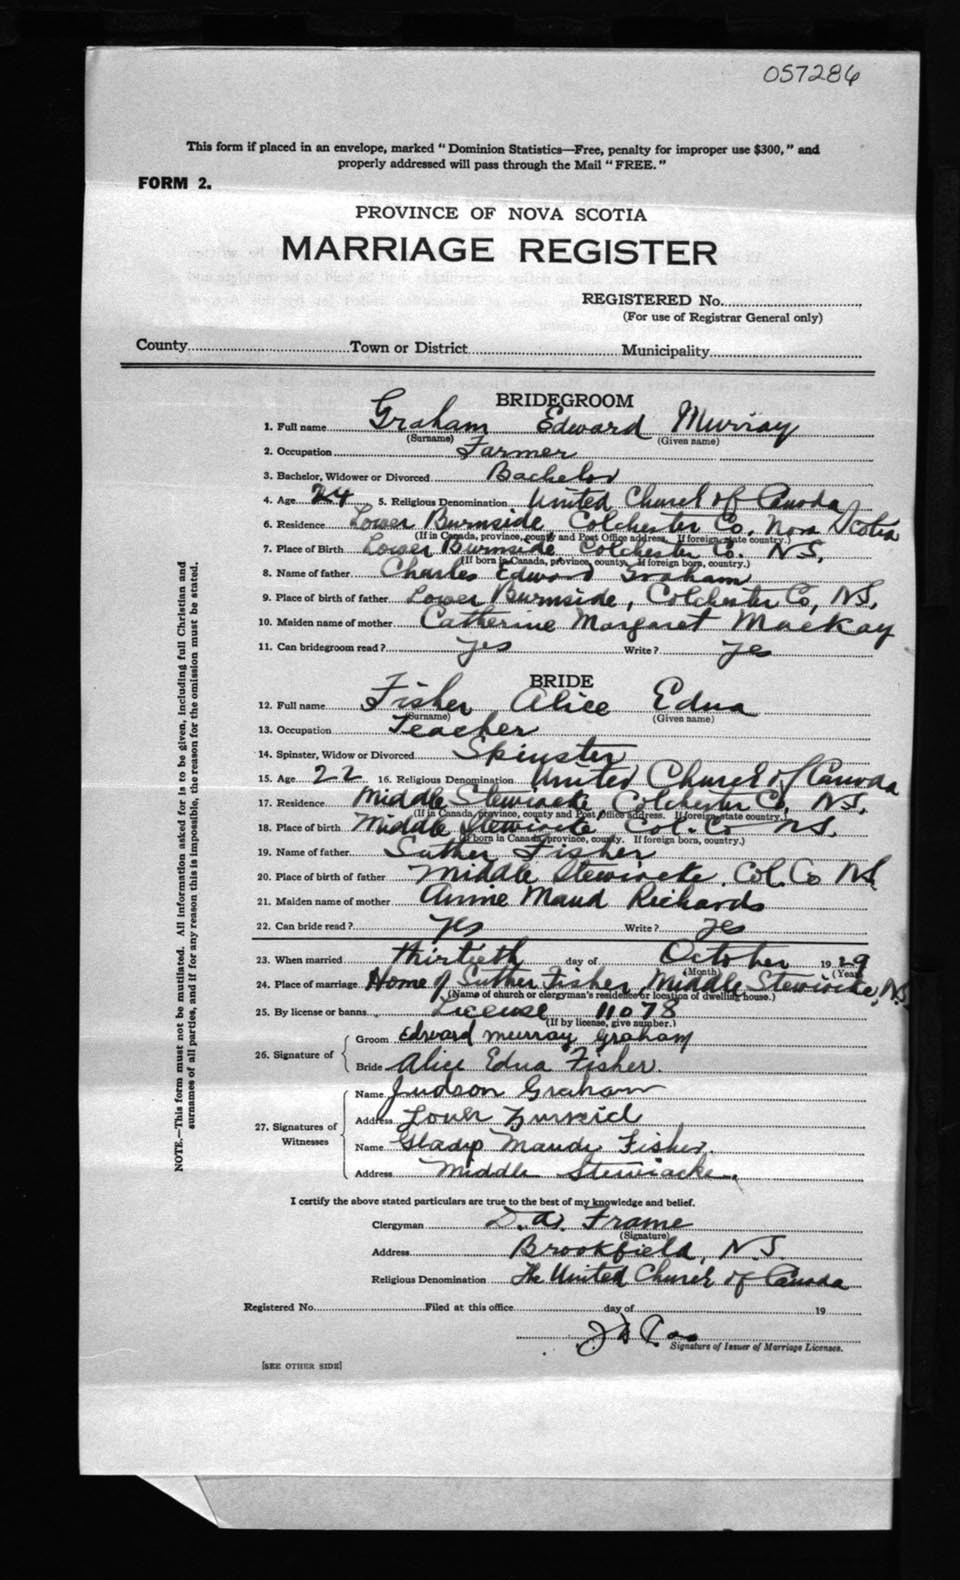 057286
This form if placed in an envelope, marked "Dominion Statistics—Free, penalty for improper use $300," and
properly addressed will pass through the Mail "FREE."
FORM 2.
PROVINCE OF NOVA SCOTIA
MARRIAGE REGISTER
REGISTERED No.
(For use of Registrar General only)
County Town or District Municipality
BRIDEGROOM
1. Full name Graham Edward Murray
(Surname) (Given name)
2. Occupation Farmer
3. Bachelor, Widower or Divorced Bachelor
4. Age 24 5. Religious Denomination United Church of Canada
6. Residence Lower Burnside, Colchester Co, Nova Scotia
(If in Canada, province, county and Post Office address. If foreign, state country.)
7. Place of Birth Lower Burnside Colchester Co. N.S,
(If born in Canada, province, county. If foreign born, country.)
8. Name of father Charles Edward Graham
9. Place of birth of father Lower Burnside, Colchester Co, N.S.
10. Maiden name of mother Catherine Margaret MacKay
11. Can bridegroom read? yes Write? yes
BRIDE
12. Full name Fisher Alice Edna
(Surname) (Given name)
13. Occupation Teacher
14. Spinster, Widow or Divorced Spinster
15. Age 22 16. Religious Denomination United Church of Canada
17. Residence Middle Stewiacke Colchester Co, N.S,
(If in Canada, province, county and Post Office address. If foreign, state country.)
18. Place of birth Middle Stewiacke Col. Co N.S.
(If born in Canada, province, county. If foreign born, country.)
19. Name of father Suther Fisher
20. Place of birth of father Middle Stewiacke. Col. Co N.S.
21. Maiden name of mother Annie Maud Richards
22. Can bride read? yes Write? yes
23. When married thirtieth day of October 1929
(Month) (Year)
24. Place of marriage Home of Suther Fisher, Middle Stewiacke, N.S.
(Name of church or clergyman's residence or location of dwelling house.)
25. By license or banns License 11078
(If by license, give number.)
26. Signature of
Groom Edward Murray Graham
Bride Alice Edna Fisher.
27. Signatures of Witnesses
Name Judson Graham
Address Lower
Name Gladys Maude Fisher.
Address Middle Stewiacke.
I certify the above stated particulars are true to the best of my knowledge and belief.
Clergyman D. W. Frame
(Signature)
Address Brookfield, N.S.
Religious Denomination The United Church of Canada
Registered No. Filed at this office day of 19
Signature of Issuer of Marriage Licenses.
[SEE OTHER SIDE]
NOTE.—This form must not be mutilated. All information asked for is to be given, including full Christian and
surnames of all parties, and if for any reason this is impossible, the reason for the omission must be stated.